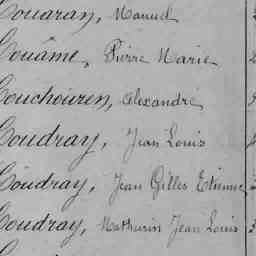 Couaran, Manuel
Couâme, Pierre Marie
Couchouren, Alexandre
Coudray, Jean Louis
Coudray, Jean Gilles Etienne
Coudray, Mathurin Jean Louis